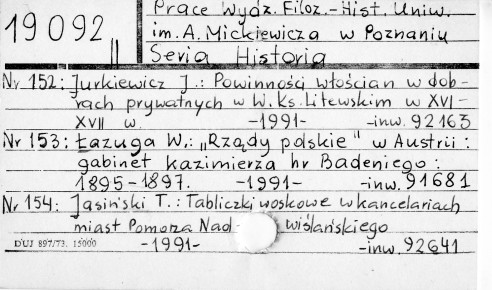 19092"
Prace Wydz. Filoz.-Hist. Uniw.
im. A. Mickiewicza w Poznaniu
Seria Historia
Nr 152: Jurkiewicz J.: Powinności włościan w dob-
rach prywatnych w W. Ks. Litewskim w XVI-
XVII w. -1991- -inw. 92163
Nr 153: Łazuga W.: „Rządy polskie" w Austrii:
gabinet Kazimierza hr Badeniego:
1895-1897. -1991- -inw. 91681
Nr 154: Jasiński T.: Tabliczki woskowe w kancelariach
miast Pomorza Nad- wiślańskiego
DUJ 897/73. 15000 -1991- -inw. 92641